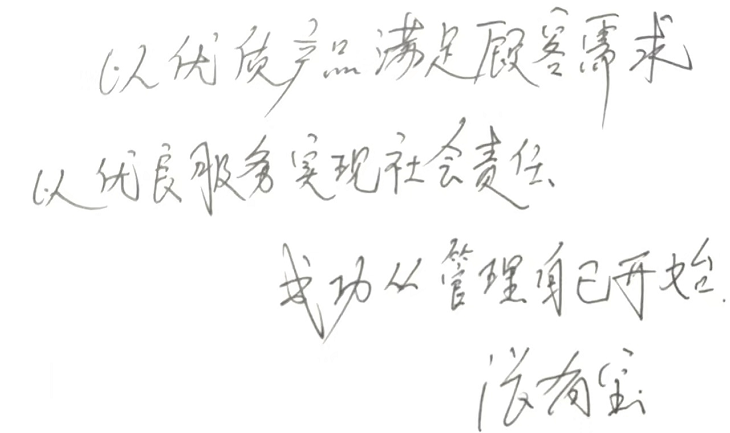 以优质产品满足顾客需求
以优良服务实现社会责任、
成功从管理自己开始.
有宝